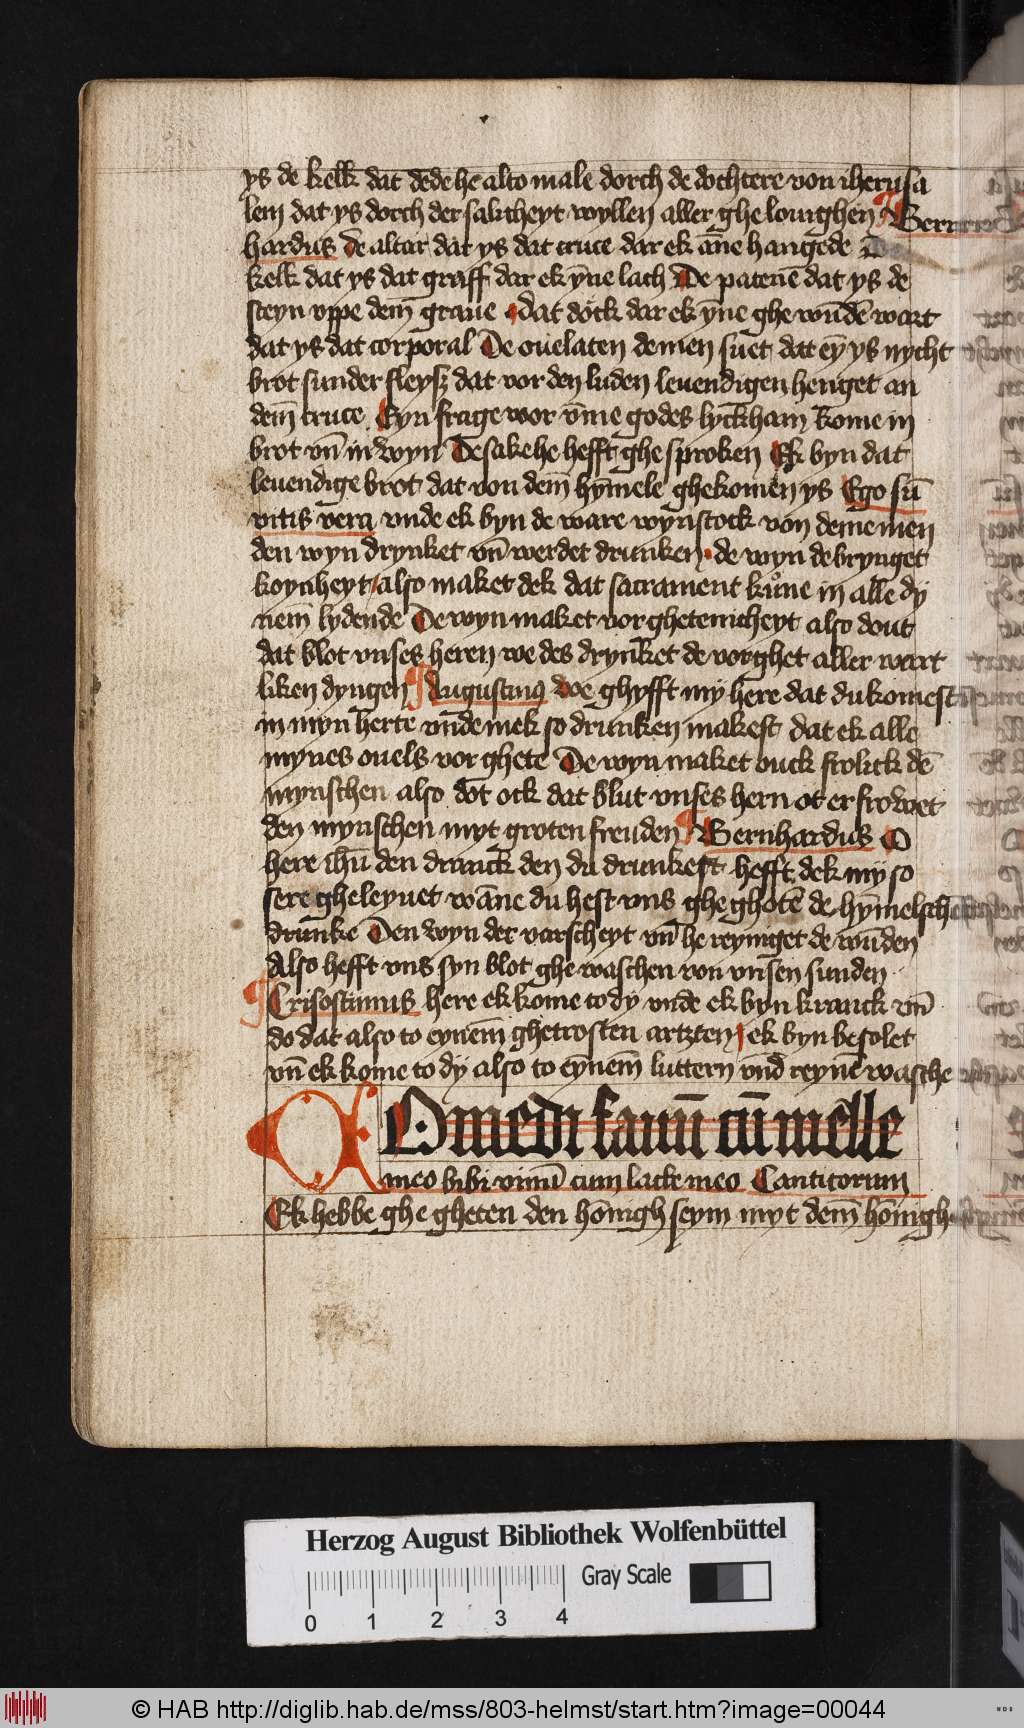 ys de kelk dat dede he altomale dorch de dochtere von iherusa
lem dat ys dorch der salicheyt wyllen aller ghe louighen Bern
hardus de altar dat ys dat cruce dar ek āne hangede De
kelk dat ys dat graff dar ek ȳne lach De patene dat ys de
steyn vppe dem̄ graue dat dock dar ek ȳne ghe wūdē wart
dat ys dat corporal De ouelaten de men suet dat eȳ ys nycht
brot sunder fleysz dat vor den luden leuendigen henget an
dem̄ cruce Eyn frage wor v̄me godes lyckham kome in
brot vn̄ in wyn De sake he hefft ghe sproken Ek byn dat
leuendige brot dat von dem̄ hȳmele ghekomen ys Ego sū
vitis vera vnde ek byn de ware wynstock von deme men
den wyn drynket vn̄ werdet drunken de wyn de brynget
koynheyt also maket dek dat sacrament kuͦne in alle dy
nem̄ lydende De wyn maket vorghetenicheyt also dout
dat blot vnses heren we des drynket de vorghet aller wert
liken dyngen Augustinus we ghyfft my here dat du komest
in myn herte vnde mek so drunken makest dat ek alle
mynes ouels vor ghete De wyn maket ouck frolick dē
mynschen also dot ock dat blut vnses hern ot erfrowet
den mynschen myt groten freuden Bernhardus O
here ihū den dranck den du drunkest hefft dek my so
sere gheleyuet wāne du hest vns ghe ghotē de hȳmelschē
drunke Den wyn der varscheyt vn̄ he reyniget de wūden
Also hefft vns syn blot ghe waschen von vnsen sunden
Crisostimus here ek kome to dy vnde ek byn kranck vn̄
do dat also to eynem̄ ghetrosten artzten ek byn besolet
vn̄ ek kome to dy also to eȳnem̄ luttern vn̄d reynē wasche
COmedi fauū cū melle
meo bibi vinū cum lacte meo Canticorum
Ek hebbe ghe gheten den hōnigh seym myt dem̄ hōnigh
Herzog August Bibliothek Wolfenbüttel
Gray Scale
0 1 2 3 4
© HAB http://diglib.hab.de/mss/803-helmst/start.htm?image=00044